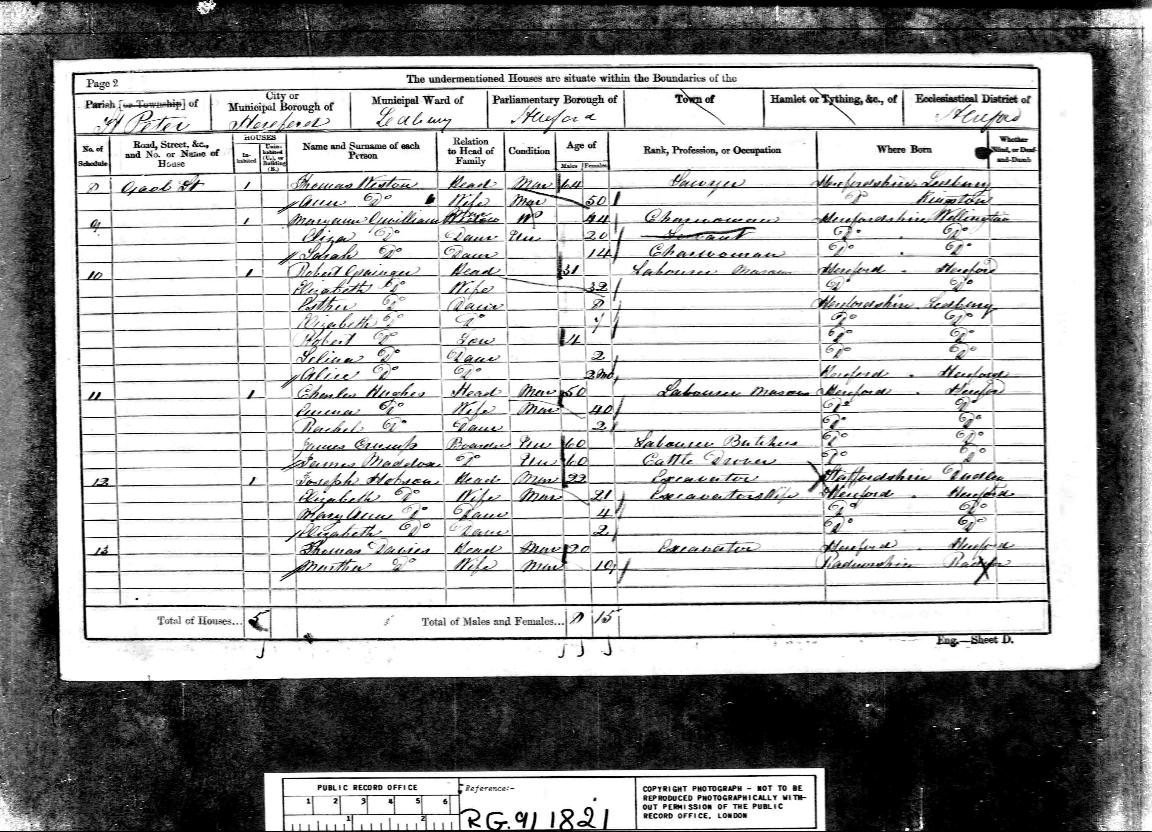 Page 2 The undermentioned Houses are situate within the Boundaries of the
Parish [or Township] of City or Municipal Borough of Municipal Ward of Parliamentary Borough of Town of Hamlet or Tything, &c., of Ecclesiastical District of
St Peter Hereford Ledbury Hereford Hereford
No. of Schedule Road, Street, &c., and No. or Name of House HOUSES Inhabited Uninhabited (U.), or Building (B.) Name and Surname of each Person Relation to Head of Family Condition Age of Males Females Rank, Profession, or Occupation Where Born Whether Blind, or Deaf-and-Dumb
8 Gaol St 1 Thomas Weston Head Mar 64 Sawyer Herefordshire Ledbury
Ann Do Wife Mar 50 Do Kington
9 1 Maryann Gwilliam W 44 Charwoman Herefordshire Wellington
Eliza Do Daur Un 20 Servant Do Do
Sarah Do Daur 14 Charwoman Do Do
10 1 Robert Grainger Head 31 Labourer Mason Hereford Hereford
Elizabeth Do Wife 32 Do Do
Esther Do Daur 8 Herefordshire Ledbury
Elizabeth Do Do 7 Do Do
Robert Do Son 4 Do Do
Selina Do Daur 2 Do Do
Alice Do Do 2 Mo Hereford Hereford
11 1 Charles Hughes Head Mar 50 Labourer Masons Hereford Hereford
Emma Do Wife Mar 40 Do Do
Rachel Do Daur 2 Do Do
James Crump Boarder Un 60 Labourer Butchers Do Do
James Maddox Do Un 60 Cattle Drover Do Do
12 1 Joseph Hobson Head Mar 22 Excavator Staffordshire Dudley
Elizabeth Do Wife Mar 21 Excavators Wife Hereford Hereford
Mary Ann Do Daur 4 Do Do
Elizabeth Do Daur 2 Do Do
13 Thomas Davies Head Mar 20 Excavator Hereford Hereford
Martha Do Wife Mar 19 Radnorshire Radnor
Total of Houses... 5 Total of Males and Females... 8 15
Eng.—Sheet D.
PUBLIC RECORD OFFICE
1 2 3 4 5 6
1 2
Reference:-
RG. 9/1821
COPYRIGHT PHOTOGRAPH - NOT TO BE
REPRODUCED PHOTOGRAPHICALLY WITH-
OUT PERMISSION OF THE PUBLIC
RECORD OFFICE, LONDON